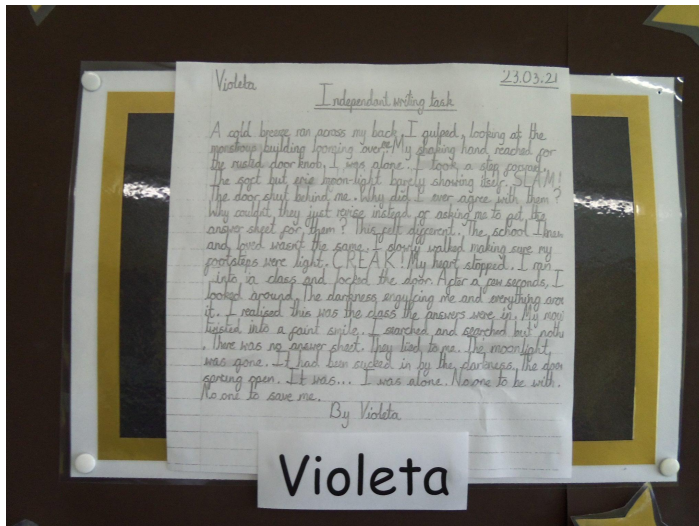 Violeta
23.03.21
Independant writing task
A cold breeze ran across my back. I gulped, looking at the
building looming over me. My shaking hand reached for
the rusted door knob. I was alone. I took a step forward.
The soft but epic moon-light barely showing itself. SLAM!
The door shut behind me. Why did I ever agree with them?
Why couldn't they just revise instead of asking me to get the
answer sheet for them? This felt different. The school I knew
and loved wasn't the same. I slowly walked making sure my
footsteps were light. CREAK! My heart stopped. I ran
into a class and locked the door. After a few seconds, I
looked around. The darkness engulfing me and everything
it. I realised this was the class the answers were in. My
twisted into a faint smile. I searched and searched but
. There was no answer sheet. They lied to me. The moonlight
was gone. It had been sucked in by the darkness. The door
sprung open. It was... I was alone. No one to be with.
No one to save me.
By Violeta
Violeta